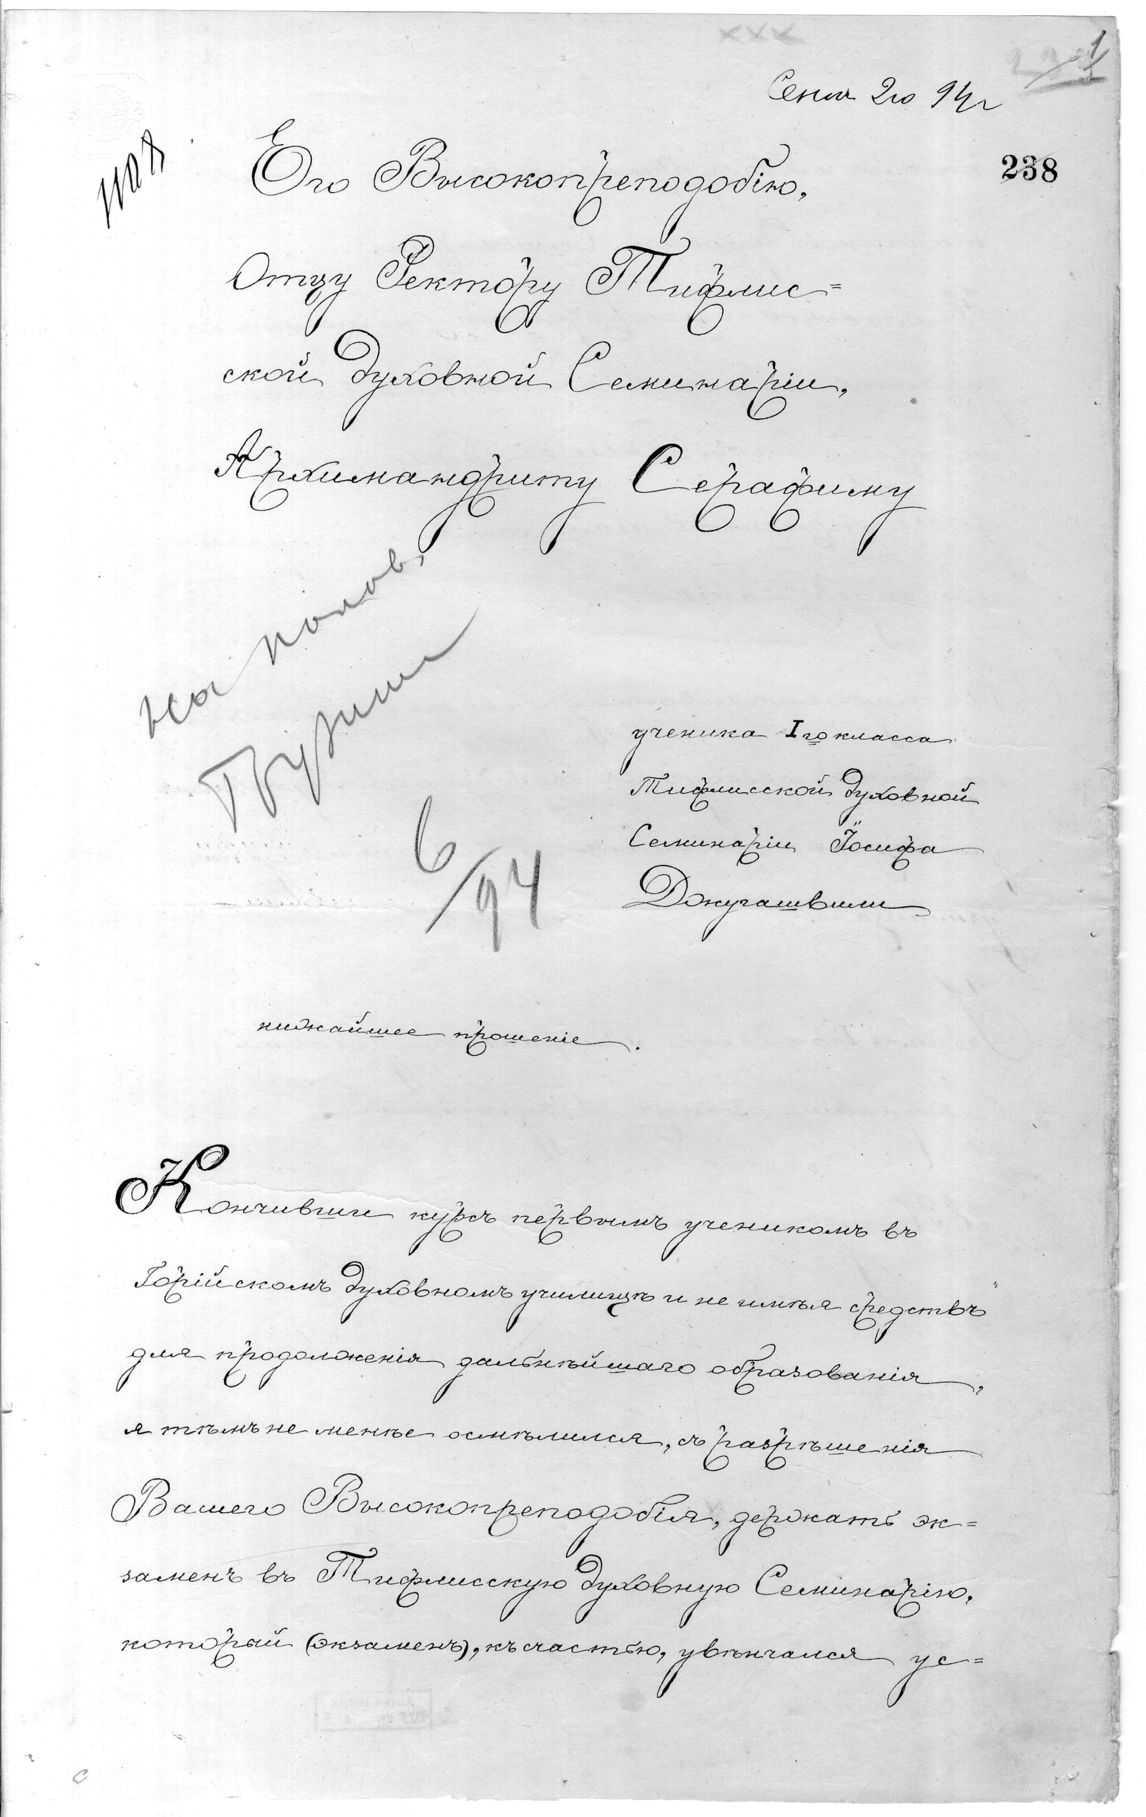 1
Сент 2го 94 г
238
Его Высокопреподобію,
Отцу Ректору Тифлис=
ской Духовной Семинаріи,
Архимандриту Серафиму
на полов.
6/94
ученика Iго класса
Тифлисской Духовной
Семинаріи Іосифа
Джугашвили
нижайшее прошеніе.
Кончивши курсъ первымъ ученикомъ въ
Горійскомъ Духовномъ училищѣ и не имѣя средствъ
для продолженія дальнѣйшаго образованія,
я тѣмъ не менѣе осмѣлился, съ разрѣшенія
Вашего Высокопреподобія, держать эк=
заменъ въ Тифлисскую Духовную Семинарію,
который (экзаменъ), къ счастью, увѣнчался ус=